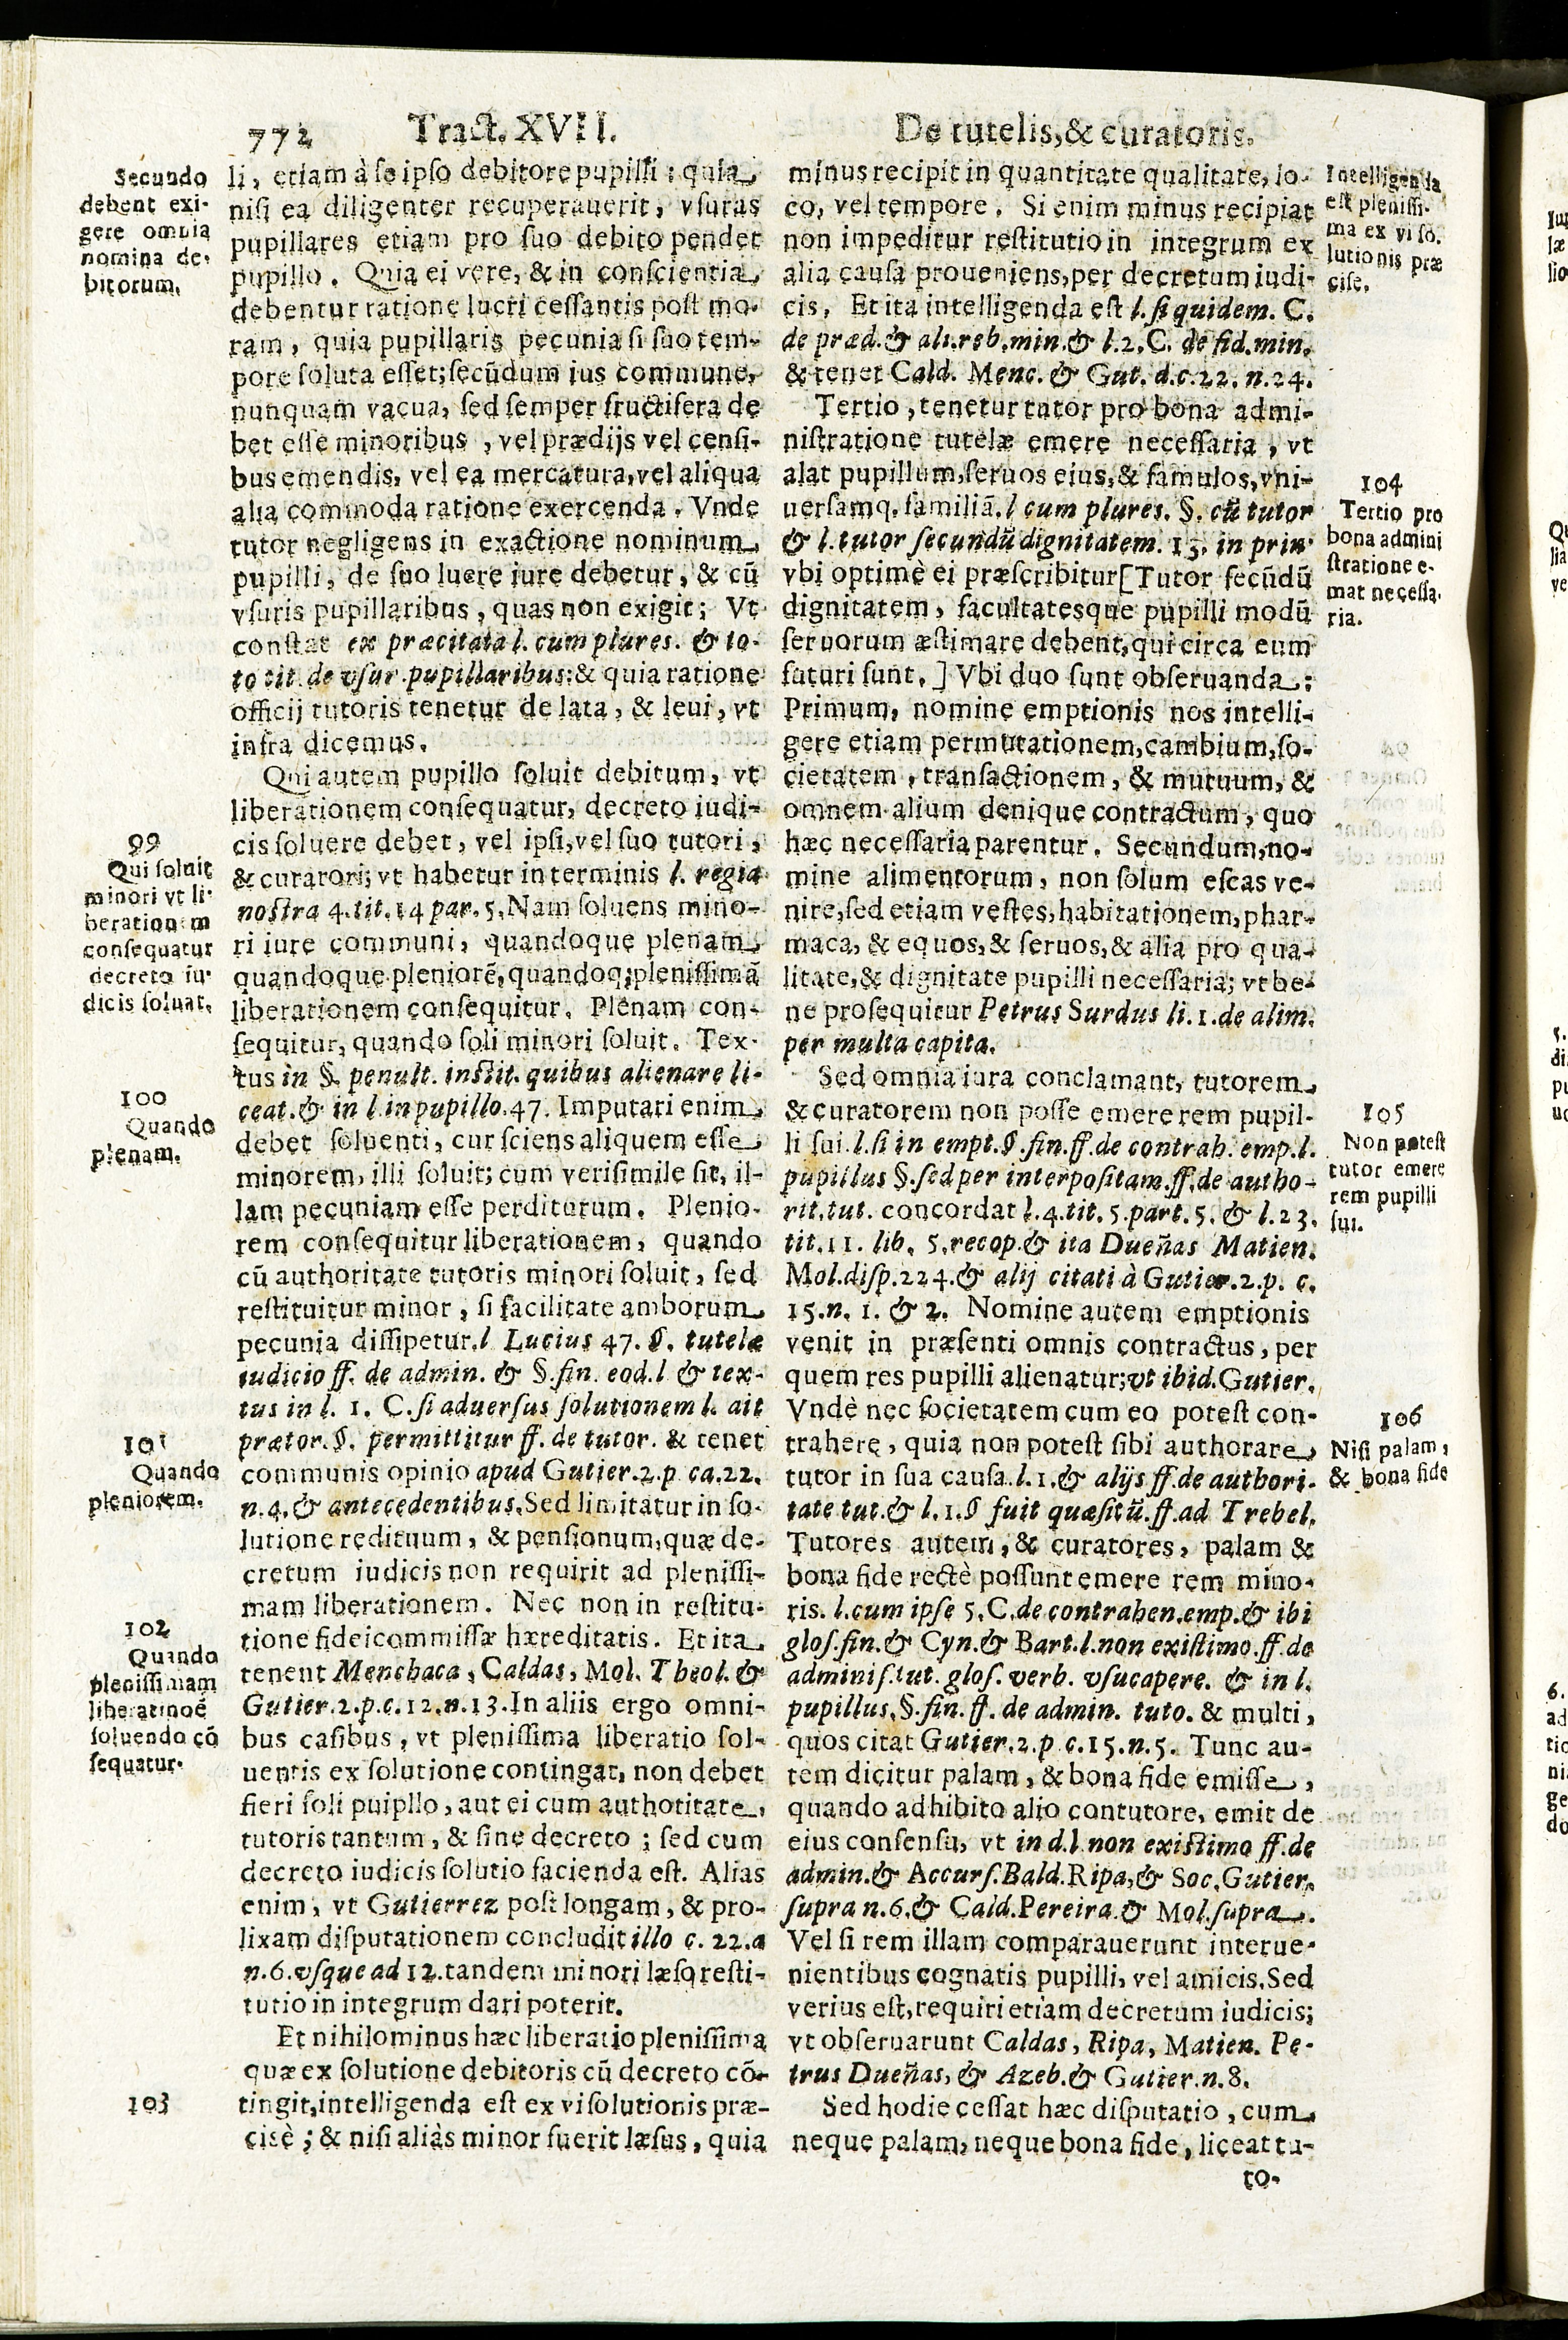 772 Tract. XVII. De tutelis, & curatoris.
Secundo
debent exi-
gere omnia
nomina de-
bitorum.
li, etiam à se ipso debitore pupilli: quia
nisi ea diligenter recuperauerit, vsuras
pupillares etiam pro suo debito pendet
pupillo. Quia ei vere, & in conscientia
debentur ratione lucri cessantis post mo-
ram, quia pupillaris pecunia si suo tem-
pore soluta esset; secũdum ius commune,
nunquam vacua, sed semper fructifera de
bet esse minoribus, vel prædijs vel censi-
bus emendis, vel ea mercatura, vel aliqua
alia commoda ratione exercenda. Vnde
tutor negligens in exactione nominum
pupilli, de suo luere iure debetur, & cũ
vsuris pupillaribus, quas non exigit; Vt
constat ex præcitata l. cum plures. & to-
to tit. de vsur. pupillaribus: & quia ratione
officij tutoris tenetur de lata, & leui, vt
infra dicemus.
Qui autem pupillo soluit debitum, vt
liberationem consequatur, decreto iudi-
cis soluere debet, vel ipsi, vel suo tutori,
& curatori; vt habetur in terminis l. regia
nostra 4. tit. 14 par. 5. Nam soluens mino-
ri iure communi, quandoque plenam,
quandoque pleniorẽ, quandoq; plenissimã
liberationem consequitur. Plenam con-
sequitur, quando soli minori soluit. Tex-
tus in §. penult. instit. quibus alienare li-
ceat. & in l. in pupillo. 47. Imputari enim
debet soluenti, cur sciens aliquem esse
minorem, illi soluit; cum verisimile sit, il-
lam pecuniam esse perditurum. Plenio-
rem consequitur liberationem, quando
cũ authoritate tutoris minori soluit, sed
restituitur minor, si facilitate amborum
pecunia dissipetur. l Lucius 47. §. tutelæ
iudicio ff. de admin. & §. fin. eod. l & tex-
tus in l. 1. C. si aduersus solutionem l. ait
prætor. §. permittitur ff. de tutor. & tenet
communis opinio apud Gutier. 2. p ca. 22.
n. 4. & antecedentibus. Sed limitatur in so-
lutione redituum, & pensionum, quæ de-
cretum iudicis non requirit ad plenissi-
mam liberationem. Nec non in restitu-
tione fideicommissæ hæreditatis. Et ita
tenent Menchaca, Caldas, Mol. Theol. &
Gutier. 2. p. c. 12. n. 13. In aliis ergo omni-
bus casibus, vt plenissima liberatio sol-
uentis ex solutione contingat, non debet
fieri soli puipllo, aut ei cum authotitate
tutoris tantum, & sine decreto; sed cum
decreto iudicis solutio facienda est. Alias
enim, vt Gutierrez post longam, & pro-
lixam disputationem concludit illo c. 22. a
n. 6. vsque ad 12. tandem minori læso resti-
tutio in integrum dari poterit.
Et nihilominus hæc liberatio plenissima
quæ ex solutione debitoris cũ decreto cõ-
tingit, intelligenda est ex vi solutionis præ-
cisè; & nisi aliàs minor fuerit læsus, quia
99
Qui soluit
minori vt li-
berationem
consequatur
decreto iu-
dicis soluat.
100
Quando
plenam.
101
Quando
pleniorem.
102
Quando
plenissimam
liberatinoẽ
soluendo cõ
sequatur.
103
minus recipit in quantitate qualitate, lo-
co, vel tempore. Si enim minus recipiat
non impeditur restitutio in integrum ex
alia causa proueniens, per decretum iudi-
cis. Et ita intelligenda est l. si quidem. C.
de præd. & ali. reb. min. & l. 2. C. de fid. min.
& tenet Cald. Menc. & Gut. d. c. 22. n. 24.
Tertio, tenetur tutor pro bona admi-
nistratione tutelæ emere necessaria, vt
alat pupillum, seruos eius, & famulos, vni-
uersamq. familiã. l cum plures. §. cũ tutor
& l. tutor secundũ dignitatem. 13. in prin.
vbi optimè ei præscribitur [Tutor secũdũ
dignitatem, facultatesque pupilli modũ
seruorum æstimare debent, qui circa eum
futuri sunt.] Vbi duo sunt obseruanda:
Primum, nomine emptionis nos intelli-
gere etiam permutationem, cambium, so-
cietatem, transactionem, & mutuum, &
omnem alium denique contractum, quo
hæc necessaria parentur. Secundum, no-
mine alimentorum, non solum escas ve-
nire, sed etiam vestes, habitationem, phar-
maca, & equos, & seruos, & alia pro qua-
litate, & dignitate pupilli necessaria; vt be-
ne prosequitur Petrus Surdus li. 1. de alim.
per multa capita.
Sed omnia iura conclamant, tutorem
& curatorem non posse emere rem pupil-
li sui. l. si in empt. §. fin. ff. de contrah. emp. l.
pupillus §. sed per interpositam. ff. de autho-
rit. tut. concordat l. 4. tit. 5. part. 5. & l. 23.
tit. 11. lib. 5. recop. & ita Dueñas Matien.
Mol. disp. 224. & alij citati à Gutier. 2. p. c.
15. n. 1. & 2. Nomine autem emptionis
venit in præsenti omnis contractus, per
quem res pupilli alienatur; vt ibid. Gutier.
Vndè nec societatem cum eo potest con-
trahere, quia non potest sibi authorare
tutor in sua causa. l. 1. & alijs ff. de authori-
tate tut. & l. 1. § fuit quæsitũ. ff. ad Trebel.
Tutores autem, & curatores, palam &
bona fide rectè possunt emere rem mino-
ris. l. cum ipse 5. C. de contrahen. emp. & ibi
glos. fin. & Cyn. & Bart. l. non existimo. ff. de
adminis. tut. glos. verb. vsucapere. & in l.
pupillus, §. fin. ff. de admin. tuto. & multi,
quos citat Gutier. 2. p c. 15. n. 5. Tunc au-
tem dicitur palam, & bona fide emisse,
quando adhibito alio contutore, emit de
eius consensu, vt in d. l. non existimo ff. de
admin. & Accurs. Bald. Ripa, & Soc. Gutier.
supra n. 6. & Cald. Pereira. & Mol. supra.
Vel si rem illam comparauerunt interue-
nientibus cognatis pupilli, vel amicis. Sed
verius est, requiri etiam decretum iudicis;
vt obseruarunt Caldas, Ripa, Matien. Pe-
trus Dueñas, & Azeb. & Gutier. n. 8.
Sed hodie cessat hæc disputatio, cum
neque palam, neque bona fide, liceat tu-
to-
Intelligenda
est plenissi-
ma ex vi so-
lutionis præ
cise.
104
Tertio pro
bona admini
stratione e-
mat necessa-
ria.
105
Non potest
tutor emere
rem pupilli
sui.
106
Nisi palam,
& bona fide